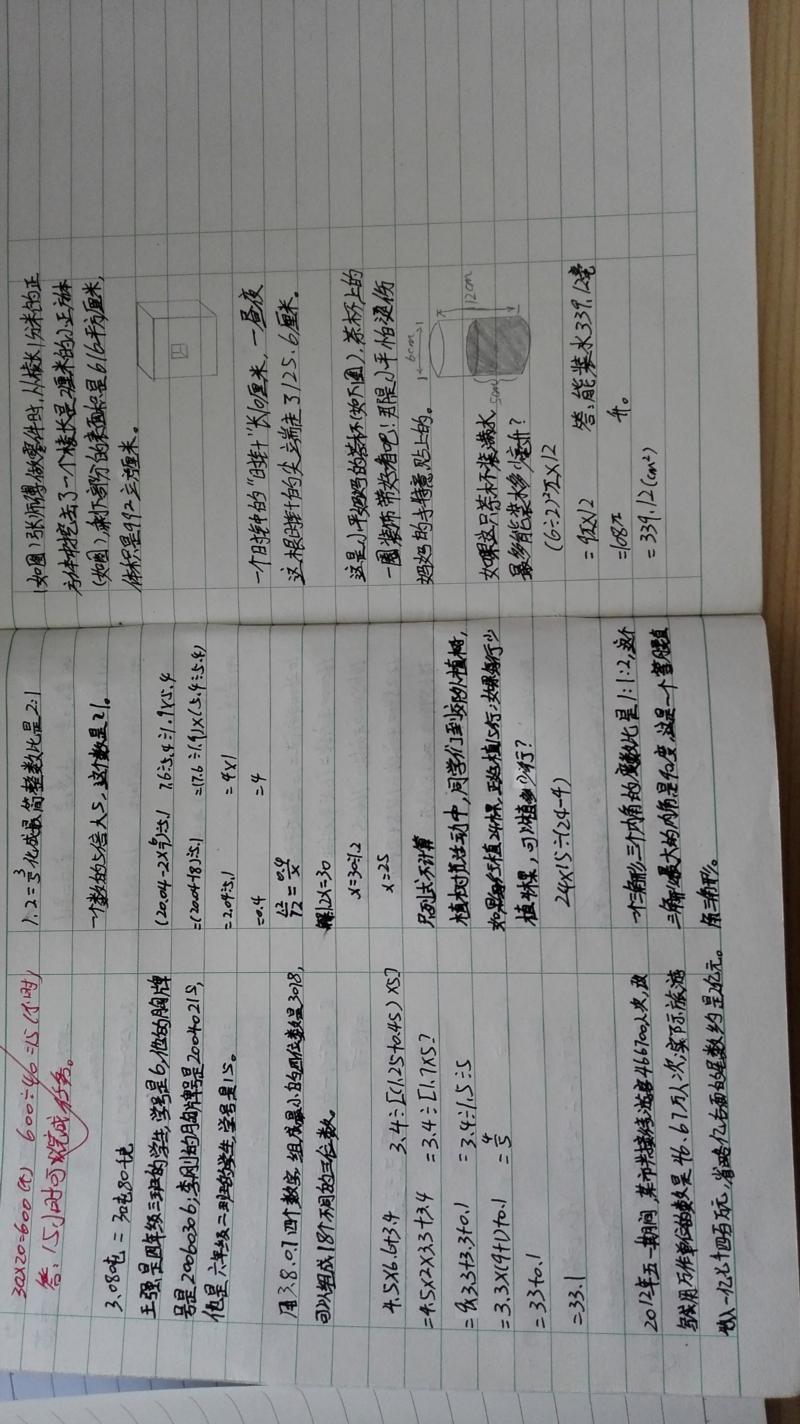 30×20=600(个) 600÷40=15(小时)
答:15小时可以完成任务。
3.08吨=3吨80千克
王强是四年级三班的学生,学号是6,他的胸牌
号是20060306;李刚的胸牌号是20040215,
他是六年级二班的学生,学号是15。
用3.8.0.1四个数字,组成最小的四位数是3018,
可以组成18个不同的三位数。
4.5×6.6+3.4
=4.5×2×3.3+3.4
=9×3.3+3.3+0.1
=3.3×(9+1)+0.1
=33+0.1
=33.1
3.4÷[(1.25+0.45)×5]
=3.4÷[1.7×5]
=3.4÷1.5÷5
=4/5
2012年五一期间,某市共接待游客466700人次,改
写成用万作单位的数是46.67万人次,实际旅游
收入一亿七千四百万元,省略亿后面的尾数约是2亿元。
1.2=3/5化成最简整数比是2:1
一个数的5倍大5,这个数是21。
(20.04-2×9)÷5.1
=(20.04-18)÷5.1
=2.04÷5.1
=0.4
7.6÷5.4÷1.9×5.4
=(7.6÷1.9)×(5.4÷5.4)
=4×1
=4
1.2/12=0.4/x
解1.2x=30
x=30÷1.2
x=25
只列式不计算
植树节活动中,同学们到校外植树,
如果每行植24棵,正好植15行;如果每行少
植4棵,可以植多少行?
24×15÷(24-4)
一个三角形,三个内角的度数比是1:1:2,这个
三角形最大的内角是90度,这是一个等腰直
角三角形。
(如图)张师傅做零件时,从棱长1分米的正
方体材挖去了一个棱长是2厘米的小正方体
(如图),剩下部分的表面积是616平方厘米,
体积是992立方厘米。
一个时钟的“时针”长10厘米,一昼夜
这根时针的尖端走了125.6厘米。
这是小平妈妈的茶杯(如下图),茶杯上的
一圈装饰带好看吧!那是小平怕烫伤
妈妈的手特意贴上的。
6cm
12cm
5cm
如果这只茶杯装满水
最多能装水多少毫升?
(6÷2)²π×12
=9π×12
=108π
=339.12(cm²)
答:能装水339.12毫
升。